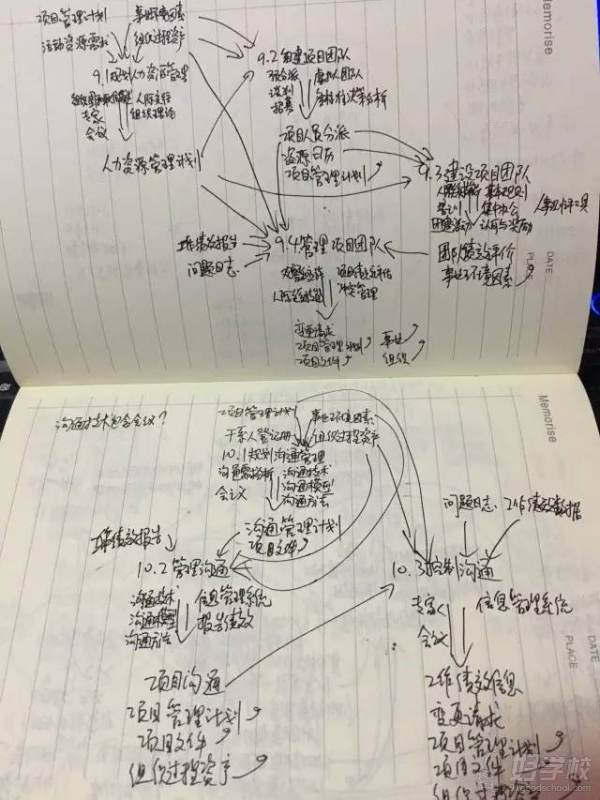 Memorise
项目管理计划 事业环境因素
活动资源需求 组织过程资产
9.1规划人力资源管理
人际交往
专家 组织理论
会议
人力资源管理计划
9.2组建项目团队
预分派 虚拟团队
谈判 多标准决策分析
招募
项目人员分派
资源日历
项目管理计划
9.3建设项目团队
人际关系技能 基本规则
培训 集中办公 人事评测工具
团队建设活动 认可与奖励
团队绩效评价
事业环境因素
工作绩效报告
问题日志
9.4管理项目团队
观察交谈 项目绩效评估
人际关系技能 冲突管理
变更请求
项目管理计划 事业
项目文件 组织
PLACE
DATE
Memorise
沟通技术包含会议？
项目管理计划 事业环境因素
干系人登记册 组织过程资产
10.1规划沟通管理
沟通需求分析 沟通技术
会议 沟通模型
沟通方法
沟通管理计划
项目文件
工作绩效报告
10.2管理沟通
沟通技术 信息管理系统
沟通模型 报告绩效
沟通方法
项目沟通
项目管理计划
项目文件
组织过程资产
问题日志 工作绩效数据
10.3控制沟通
专家 信息管理系统
会议
工作绩效信息
变更请求
项目管理计划
项目文件
组织过程资产
PLACE
DATE
好学校
goodschool.com